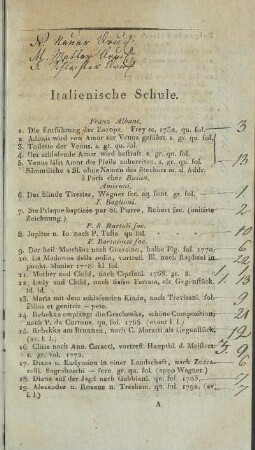 N. Neuer Druck
M. Matter Druck
S. Schlechter Druck
Italienische Schule.
Franz Albani.
1. Die Entführung der Europa. Frey sc. 1732. qu. fol. 3
2. Adonis wird von Amor zur Venus geführt. s. gr. qu. fol.
3. Toilette der Venus. s. gr. qu. fol.
4. Der schlafende Amor wird bestraft. s. gr. qu. fol.
5. Venus läßt Amor die Pfeile zubereiten. s. gr. qu. fol. 13
Sämmtliche 4 Bl. ohne Namen des Stechers m. d. Addr.
à Paris chez Basan.
Amiconi.
6. Der blinde Tiresias, Wagner sc. aq. font. gr. qu. fol. 2
J. Baglioni.
7. Ste Prisque baptisée par St. Pierre, Robert fec. (imitirte 1
Zeichnung.)
P. S. Bartoli fec.
8. Jupiter u. Io. nach P. Testa. qu. fol. 10
F. Bartolozzi fec.
9. Der heil. Matthias nach Guercino, halbe Fig. fol. 1770. 6
10. La Madonna della sedia, vortrefl. Bl. nach Raphael in 20
punkt. Manier 1778. kl. fol.
11. Mother and Child, nach Cipriani. 1768. gr. 8. 1
12. Lady and Child, nach Sasso Ferrata, als Gegenstück 13
kl. fol.
13. Maria mit dem schlafenden Kinde, nach Trevisani. fol. 3
Filius et genitrix — pete.
14. Rebekka empfängt die Geschenke, schöne Composition,
nach P. da Cortona. qu. fol. 1765. (avant l. l.)
15. Rebekka am Brunnen, nach C. Maratti als Gegenstück, 12
(av. l. l.)
16. Clitie nach Ann. Caracci, vortrefl. Hauptbl. d. Meisters. 9
in gr. fol. 1772.
17. Diana u. Endymion in einer Landschaft, nach Zuccarelli. 6
Sagrobeschi — fece. gr. fol. (appo Wagner.)
18. Diana auf der Jagd nach Gabbiani. qu. fol. 1763. 7
19. Alexander u. Roxane n. Tresham. qu. fol. 1792. (av. l. l.) 18
A